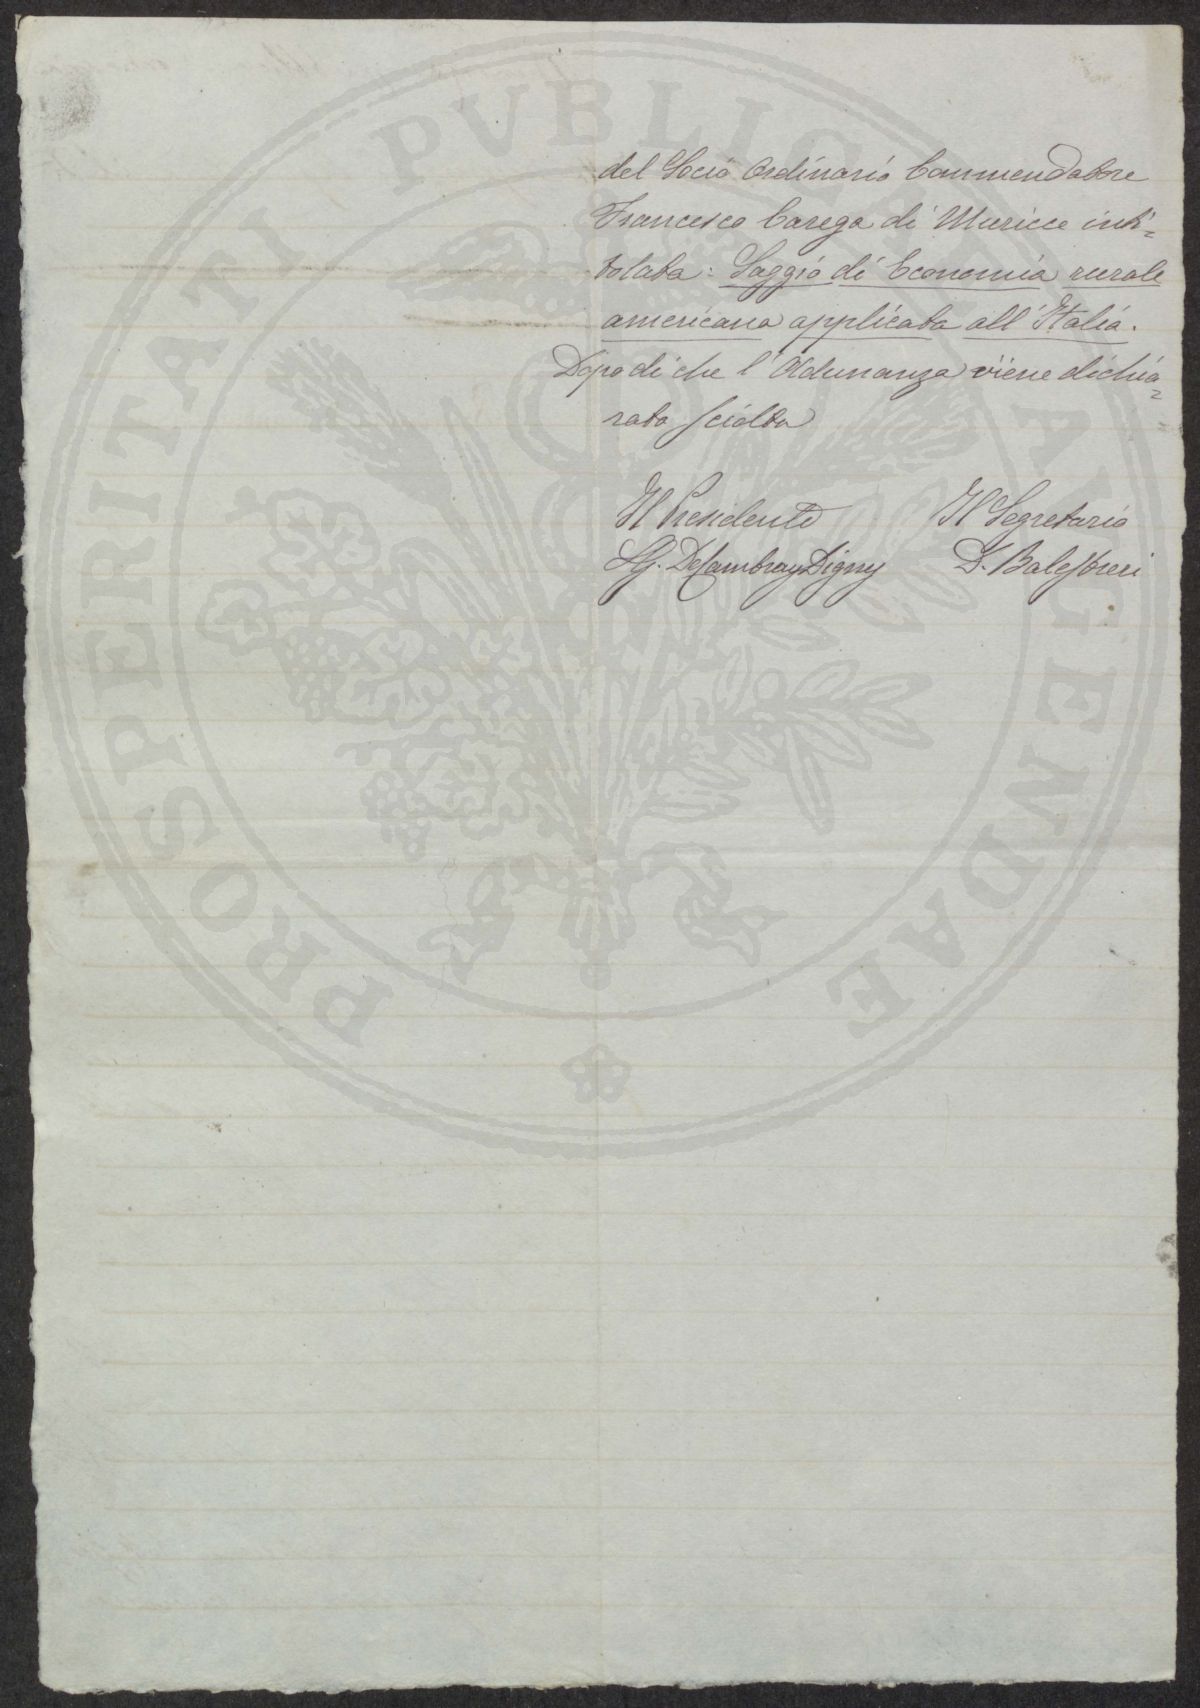 PROSPERITATI PVBLICAE AVGENDAE
del Socio Ordinario Commendatore
Francesco Carega di Muricce inti=
tolata: Saggio di Economia rurale
americana applicata all'Italia.
Dopo di che l'Adunanza viene dichia=
rata sciolta
Il Presidente Il Segretario
LG. DeCambray Digny D. Balestreri